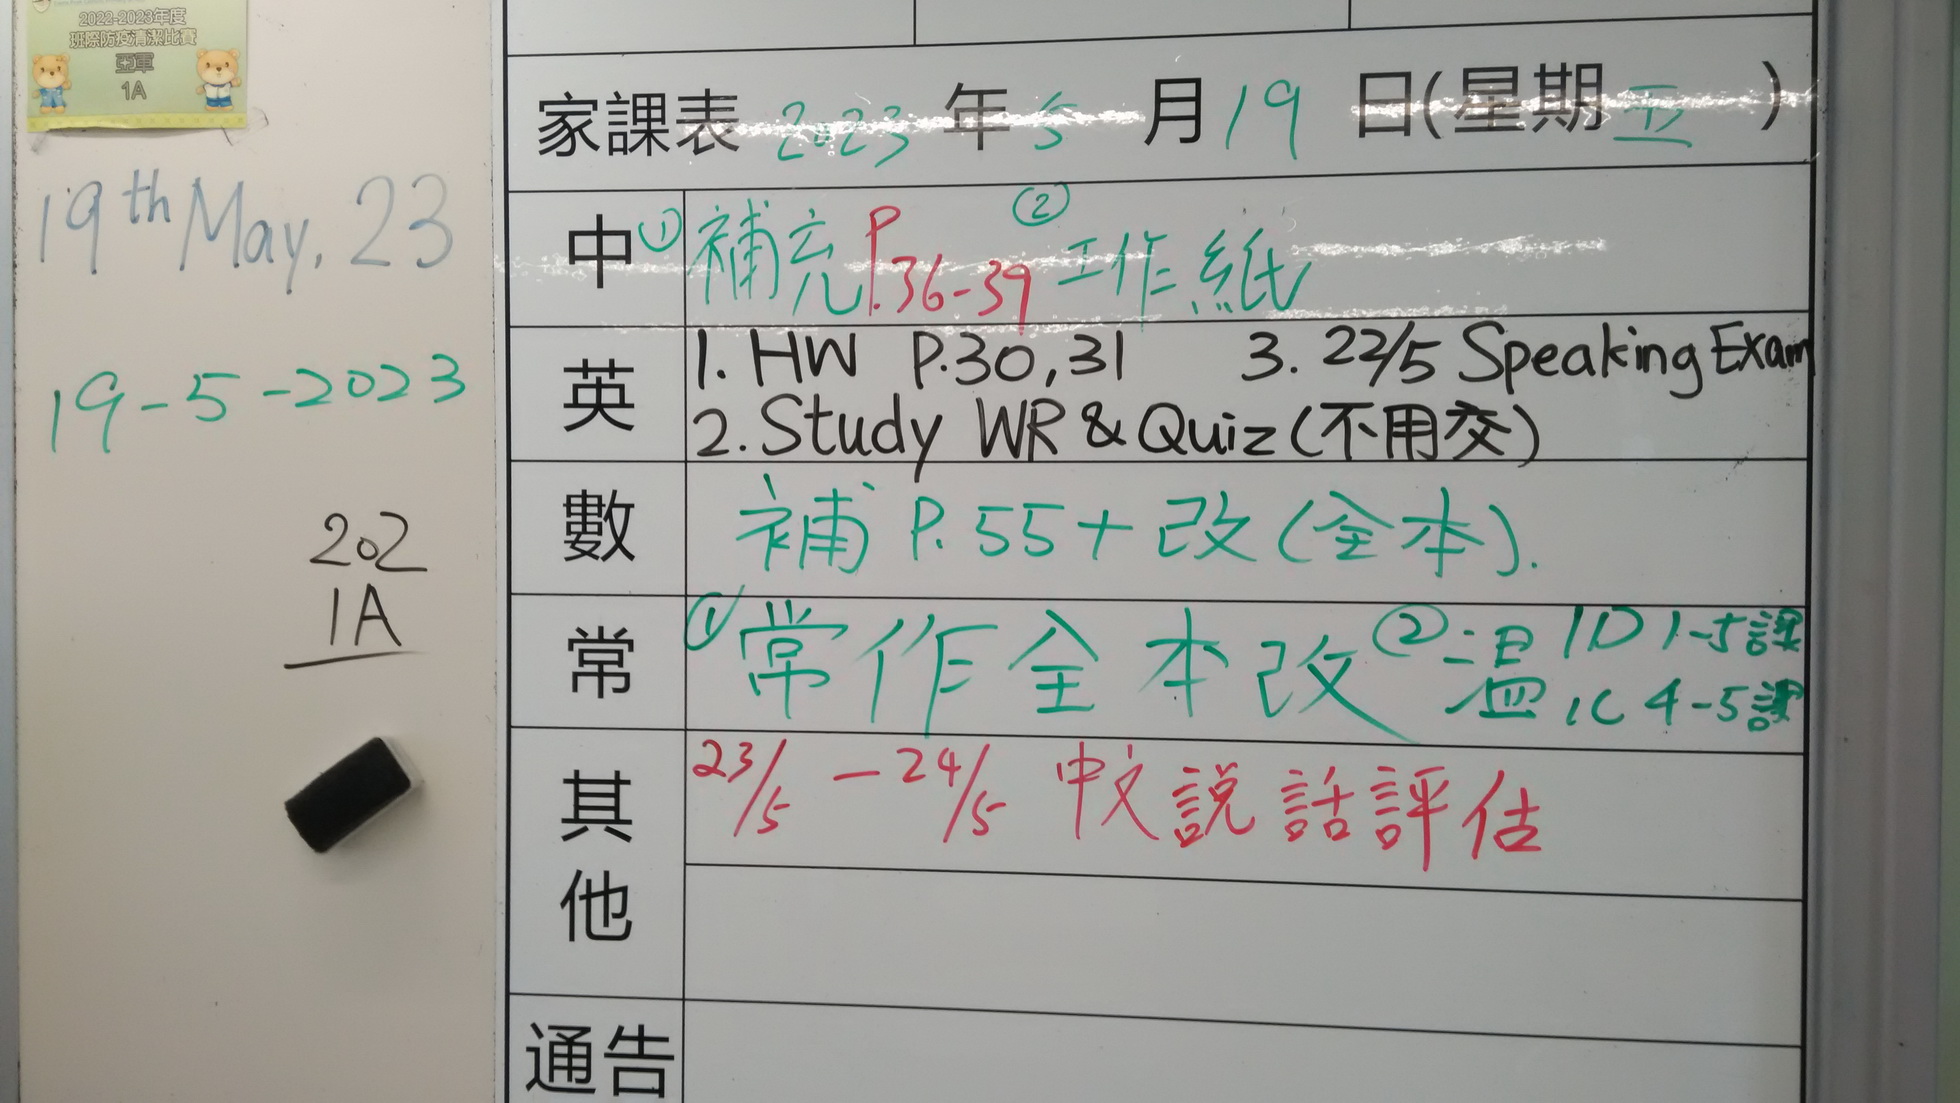 2022-2023年度
班際防疫清潔比賽
亞軍
1A
19th May, 23
19-5-2023
202
1A
家課表 2023 年 5 月 19 日(星期 五 )
中 ① 補充 P.36-39 ② 工作紙
英 1. HW P.30,31 3. 22/5 Speaking Exam
2. Study WR & Quiz (不用交)
數 補 P.55+改(全本).
常 ① 常作全本改 ② 溫 1D 1-5課
1C 4-5課
其他 23/5 - 24/5 中文說話評估
通告